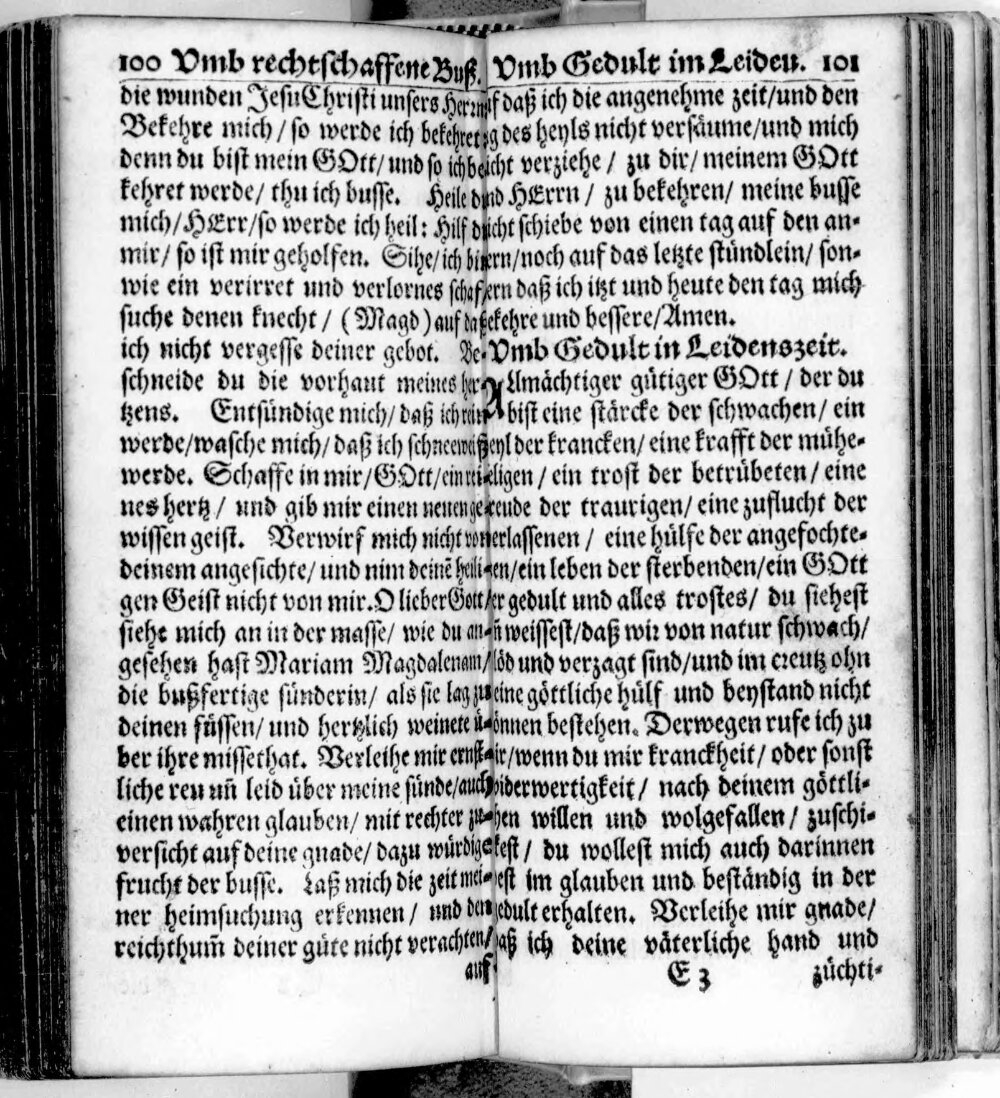 100 Vmb rechtschaffene Buß.
die wunden JesuChristi unsers Herrn
Bekehre mich/ so werde ich bekehret
denn du bist mein GOtt/ und so ich be
kehret werde/ thu ich busse. Heile du
mich/ HErr/so werde ich heil: Hilf du
mir/ so ist mir geholfen. Sihe/ ich bin
wie ein verirret und verlornes schaf/
suche denen knecht/ (Magd) auf daß
ich nicht vergesse deiner gebot. Be-
schneide du die vorhaut meines her-
tzens. Entsündige mich/ daß ich rein
werde/wasche mich/ daß ich schneeweiß
werde. Schaffe in mir/ GOtt/ ein rei-
nes hertz/ und gib mir einen neuen ge-
wissen geist. Verwirf mich nicht von
deinem angesichte/ und nim deinē heili-
gen Geist nicht von mir. O lieber Gott/
siehe mich an in der masse/ wie du an-
gesehen hast Mariam Magdalenam/
die bußfertige sünderin/ als sie lag zu
deinen füssen/ und hertzlich weinete ü-
ber ihre missethat. Verleihe mir ernst-
liche reu uñ leid über meine sünde/auch
einen wahren glauben/ mit rechter zu-
versicht auf deine gnade/ dazu würdige
frucht der busse. Laß mich die zeit mei-
ner heimsuchung erkennen/ und den
reichthum̃ deiner güte nicht verachten/
auf
Vmb Gedult im Leiden. 101
uf daß ich die angenehme zeit/und den
g des heyls nicht versäume/und mich
icht verziehe/ zu dir/ meinem GOtt
nd HErrn/ zu bekehren/ meine busse
icht schiebe von einen tag auf den an-
ern/noch auf das letzte stündlein/ son-
ern daß ich itzt und heute den tag mich
ekehre und bessere/Amen.
Vmb Gedult in Leidenszeit.
Allmächtiger gütiger GOtt/ der du
bist eine stärcke der schwachen/ ein
eyl der krancken/ eine krafft der mühe-
eligen/ ein trost der betrübeten/ eine
reude der traurigen/ eine zuflucht der
erlassenen/ eine hülfe der angefochte-
en/ein leben der sterbenden/ein GOtt
er gedult und alles trostes/ du siehest
ñ weissest/daß wir von natur schwach/
löd und verzagt sind/und im creutz ohn
eine göttliche hülf und beystand nicht
önnen bestehen. Derwegen rufe ich zu
ir/wenn du mir kranckheit/ oder sonst
iderwertigkeit/ nach deinem göttli-
hen willen und wolgefallen/ zuschi-
kest/ du wollest mich auch darinnen
est im glauben und beständig in der
edult erhalten. Verleihe mir gnade/
aß ich deine väterliche hand und
E 3 züchti-